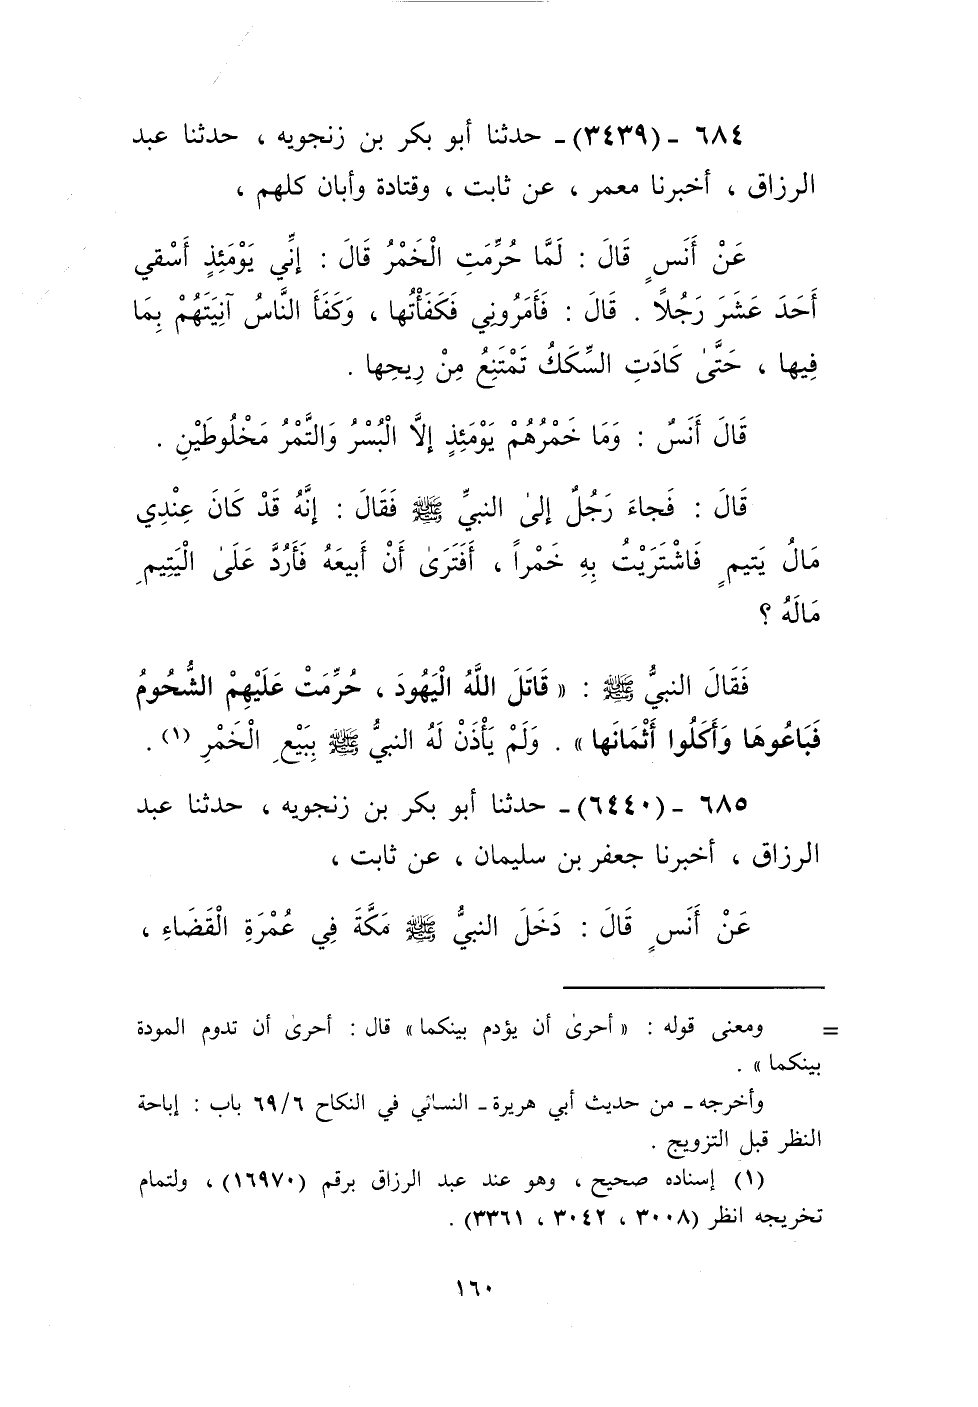 ٦٨٤ ـ (٣٤٣٩) ـ حدثنا أبو بكر بن زنجويه ، حدثنا عبد
الرزاق ، أخبرنا معمر ، عن ثابت ، وقتادة وأبان كلهم ،
عَنْ أَنَسٍ قَالَ : لَمَّا حُرِّمَتِ الْخَمْرُ قَالَ : إِنِّي يَوْمَئِذٍ أَسْقي
أَحَدَ عَشَرَ رَجُلاً . قَالَ : فَأَمَرُوني فَكَفَأْتُها ، وَكَفَأَ النَّاسُ آنِيَتَهُمْ بِمَا
فِيها ، حَتَّىٰ كَادَتِ السِّكَكُ تَمْتَنِعُ مِنْ رِيحِها .
قَالَ أَنَسٌ : وَمَا خَمْرُهُمْ يَوْمَئِذٍ إلَّا الْبُسْرُ وَالتَّمْرُ مَخْلُوطَيْنِ .
قَالَ : فَجاءَ رَجُلٌ إلىٰ النبيِّ ﷺ فَقَالَ : إنَّهُ قَدْ كَانَ عِنْدِي
مَالُ يَتيمٍ فَاشْتَرَيْتُ بِهِ خَمْراً ، أَفَتَرَىٰ أَنْ أَبيعَهُ فَأَرُدَّ عَلَىٰ الْيَتِيمِ
مَالَهُ ؟
فَقَالَ النبيُّ ﷺ : « قَاتَلَ اللَّهُ الْيَهُودَ ، حُرِّمَتْ عَلَيْهِمْ الشُّحُومُ
فَبَاعُوهَا وَأَكَلُوا أَثْمَانَها » . وَلَمْ يَأْذَنْ لَهُ النبيُّ ﷺ بِبَيْعِ الْخَمْرِ (١) .
٦٨٥ ـ (٦٤٤٠) ـ حدثنا أبو بكر بن زنجويه ، حدثنا عبد
الرزاق ، أخبرنا جعفر بن سليمان ، عن ثابت ،
عَنْ أَنَسٍ قَالَ : دَخَلَ النبيُّ ﷺ مَكَّةَ فِي عُمْرَةِ الْقَضَاءِ ،
= ومعنى قوله : « أحرىٰ أن يؤدم بينكما » قال : أحرىٰ أن تدوم المودة
بينكما » .
وأخرجه ـ من حديث أبي هريرة ـ النسائي في النكاح ٦٩/٦ باب : إباحة
النظر قبل التزويج .
(١) إسناده صحيح ، وهو عند عبد الرزاق برقم (١٦٩٧٠) ، ولتمام
تخريجه انظر (٣٠٠٨ ، ٣٠٤٢ ، ٣٣٦١) .
١٦٠